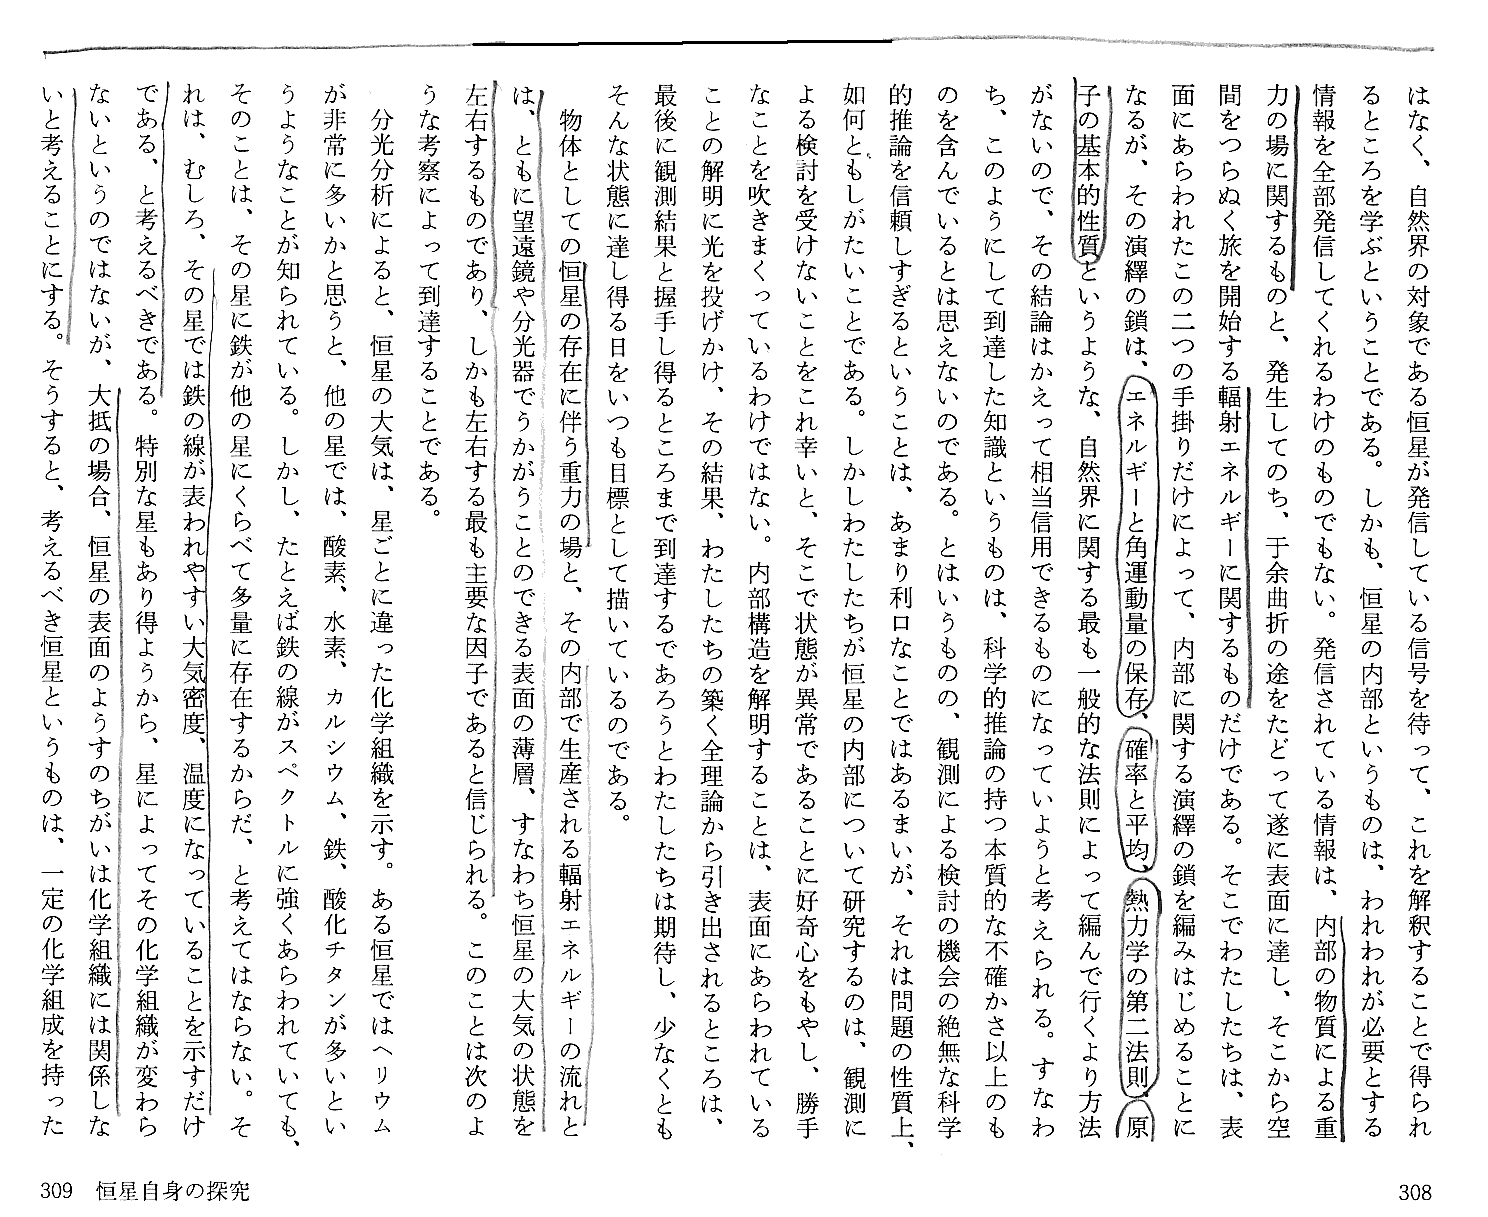 はなく、自然界の対象である恒星が発信している信号を待って、これを解釈することで得られ
るところを学ぶということである。しかも、恒星の内部というものは、われわれが必要とする
情報を全部発信してくれるわけのものでもない。発信されている情報は、内部の物質による重
力の場に関するものと、発生してのち、于余曲折の途をたどって遂に表面に達し、そこから空
間をつらぬく旅を開始する輻射エネルギーに関するものだけである。そこでわたしたちは、表
面にあらわれたこの二つの手掛りだけによって、内部に関する演繹の鎖を編みはじめることに
なるが、その演繹の鎖は、エネルギーと角運動量の保存、確率と平均、熱力学の第二法則、原
子の基本的性質というような、自然界に関する最も一般的な法則によって編んで行くより方法
がないので、その結論はかえって相当信用できるものになっていようと考えられる。すなわ
ち、このようにして到達した知識というものは、科学的推論の持つ本質的な不確かさ以上のも
のを含んでいるとは思えないのである。とはいうものの、観測による検討の機会の絶無な科学
的推論を信頼しすぎるということは、あまり利口なことではあるまいが、それは問題の性質上、
如何ともしがたいことである。しかしわたしたちが恒星の内部について研究するのは、観測に
よる検討を受けないことをこれ幸いと、そこで状態が異常であることに好奇心をもやし、勝手
なことを吹きまくっているわけではない。内部構造を解明することは、表面にあらわれている
ことの解明に光を投げかけ、その結果、わたしたちの築く全理論から引き出されるところは、
最後に観測結果と握手し得るところまで到達するであろうとわたしたちは期待し、少なくとも
そんな状態に達し得る日をいつも目標として描いているのである。
物体としての恒星の存在に伴う重力の場と、その内部で生産される輻射エネルギーの流れと
は、ともに望遠鏡や分光器でうかがうことのできる表面の薄層、すなわち恒星の大気の状態を
左右するものであり、しかも左右する最も主要な因子であると信じられる。このことは次のよ
うな考察によって到達することである。
分光分析によると、恒星の大気は、星ごとに違った化学組織を示す。ある恒星ではヘリウム
が非常に多いかと思うと、他の星では、酸素、水素、カルシウム、鉄、酸化チタンが多いとい
うようなことが知られている。しかし、たとえば鉄の線がスペクトルに強くあらわれていても、
そのことは、その星に鉄が他の星にくらべて多量に存在するからだ、と考えてはならない。そ
れは、むしろ、その星では鉄の線が表われやすい大気密度、温度になっていることを示すだけ
である、と考えるべきである。特別な星もあり得ようから、星によってその化学組織が変わら
ないというのではないが、大抵の場合、恒星の表面のようすのちがいは化学組織には関係しな
いと考えることにする。そうすると、考えるべき恒星というものは、一定の化学組成を持った
308
309 恒星自身の探究